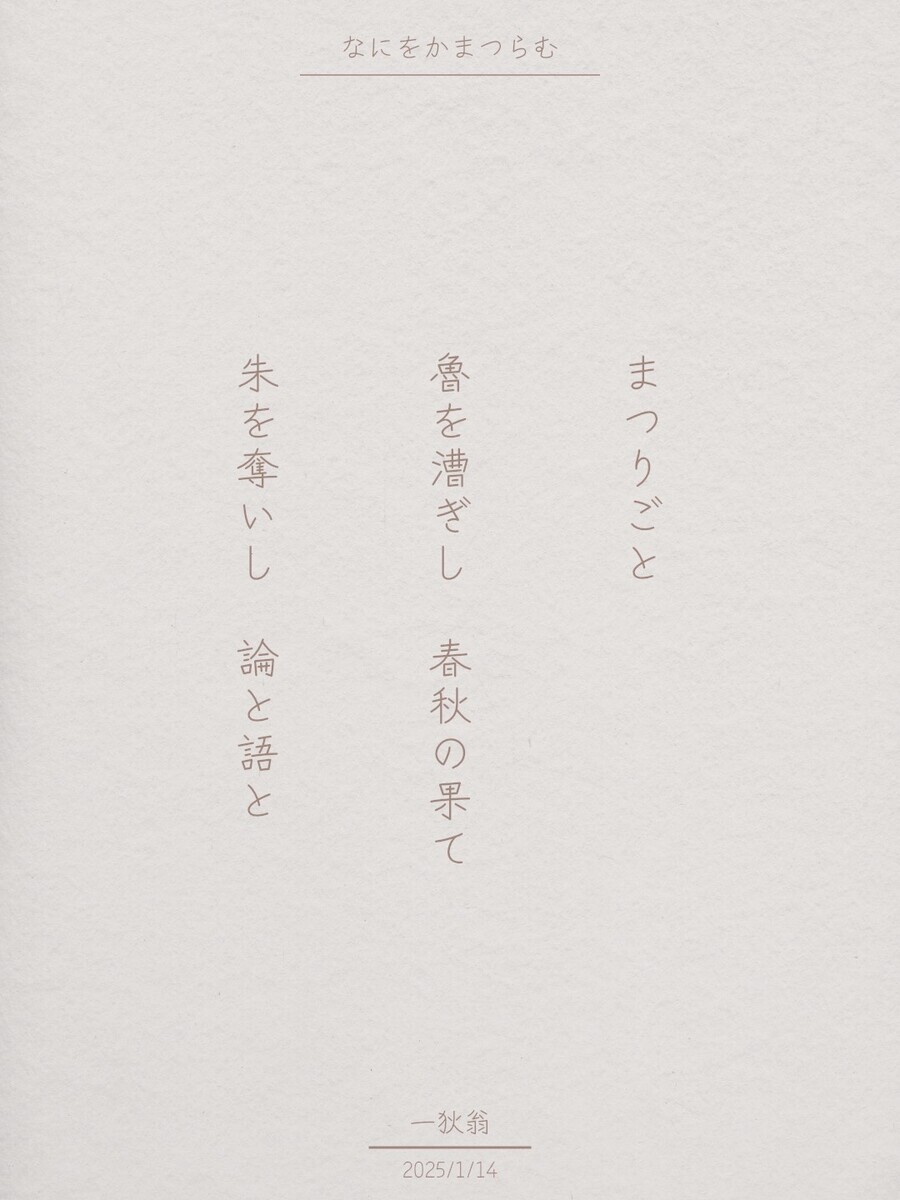 なにをかまつらむ
まつりごと
魯を漕ぎし　春秋の果て
朱を奪いし　論と語と
一狄翁
2025/1/14